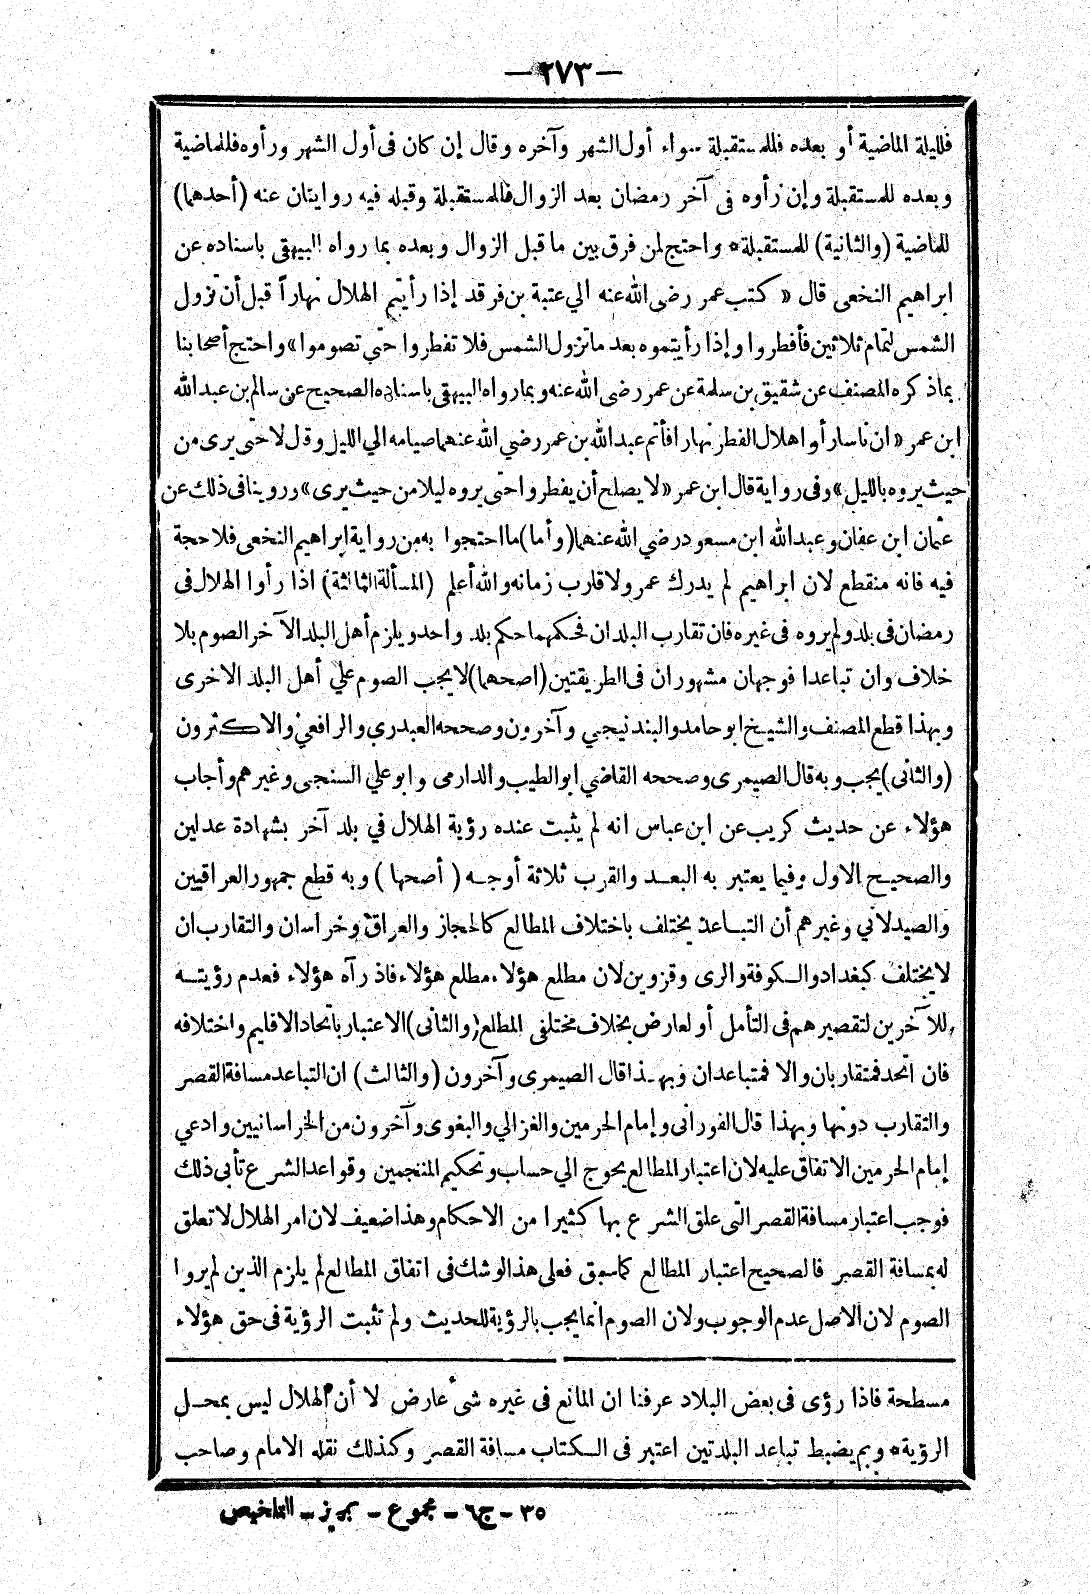 — ٢٧٣ —
فلليلة الماضية أو بعده فللمستقبلة سواء أول الشهر وآخره وقال إن كان فى أول الشهر ورأوه فللماضية
وبعده للمستقبلة وإن رأوه فى آخر رمضان بعد الزوال فالمستقبلة وقبله فيه روايتان عنه (أحدها)
للماضية (والثانية) للمستقبلة * واحتج لمن فرق بين ما قبل الزوال وبعده بما رواه البيهقى باسناده عن
ابراهيم النخعى قال « كتب عمر رضى الله عنه الي عتبة بن فرقد إذا رأيتم الهلال نهاراً قبل أن تزول
الشمس لتمام ثلاثين فأفطروا وإذا رأيتموه بعد ما تزول الشمس فلا تفطروا حتي تصوموا » واحتج أصحابنا
بما ذكره المصنف عن شقيق بن سلمة عن عمر رضى الله عنه وبما رواه البيهقى باسناده الصحيح عن سالم بن عبد الله
ابن عمر « ان ناسا رأوا هلال الفطر نهارا فأتم عبد الله بن عمر رضي الله عنهما صيامه الي الليل وقال لا حتى يرى من
حيث يروه بالليل » وفى رواية قال ابن عمر « لا يصلح أن يفطروا حتى يروه ليلا من حيث يرى » وروينا فى ذلك عن
عثمان ابن عفان وعبد الله ابن مسعود رضي الله عنهما (وأما) ما احتجوا به من رواية ابراهيم النخعى فلا حجة
فيه فانه منقطع لان ابراهيم لم يدرك عمر ولا قارب زمانه والله أعلم (المسألة الثالثة) اذا رأوا الهلال فى
رمضان فى بلد ولم يروه فى غيره فان تقارب البلدان فحكمهما حكم بلد واحد ويلزم أهل البلد الآخر الصوم بلا
خلاف وان تباعدا فوجهان مشهوران فى الطريقتين (اصحهما) لا يجب الصوم علي أهل البلد الاخرى
وبهذا قطع المصنف والشيخ ابو حامد والبندنيجي وآخرون وصححه العبدري والرافعي والاكثرون
(والثانى) يجب وبه قال الصيمرى وصححه القاضي ابو الطيب والدارمى وابو علي السنجى وغيرهم وأجاب
هؤلاء عن حديث كريب عن ابن عباس انه لم يثبت عنده رؤية الهلال في بلد آخر بشهادة عدلين
والصحيح الاول وفيما يعتبر به البعد والقرب ثلاثة أوجه ( أصحها ) وبه قطع جمهور العراقيين
والصيدلاني وغيرهم أن التباعد يختلف باختلاف المطالع كالحجاز والعراق وخراسان والتقارب ان
لا يختلف كبغداد والكوفة والرى وقزوين لان مطلع هؤلاء مطلع هؤلاء فاذ رآه هؤلاء فعدم رؤيته
للآخرين لتقصيرهم فى التأمل أو لعارض بخلاف مختلفى المطلع (والثانى) الاعتبار باتحاد الاقليم واختلافه
فان اتحد فمتقاربان والا فمتباعدان وبهذا قال الصيمرى وآخرون (والثالث) ان التباعد مسافة القصر
والتقارب دونها وبهذا قال الفورانى وإمام الحرمين والغزالي والبغوى وآخرون من الخراسانيين وادعي
إمام الحرمين الاتفاق عليه لان اعتبار المطالع يحوج الي حساب وتحكيم المنجمين وقواعد الشرع تأبى ذلك
فوجب اعتبار مسافة القصر التي علق الشرع بها كثيرا من الاحكام وهذا ضعيف لان امر الهلال لا تعلق
له بمسافة القصر فالصحيح اعتبار المطالع كما سبق فعلى هذا لو شك فى اتفاق المطالع لم يلزم الذين لم يروا
الصوم لان الاصل عدم الوجوب ولان الصوم انما يجب بالرؤية للحديث ولم تثبت الرؤية فى حق هؤلاء
مسطحة فاذا رؤى فى بعض البلاد عرفنا ان المانع فى غيره شىء عارض لا أن الهلال ليس بمحل
الرؤية * وبم يضبط تباعد البلدتين اعتبر فى الكتاب مسافة القصر وكذلك نقله الامام وصاحب
٣٥ - ج٦ - مجموع - عزيز - التلخيص